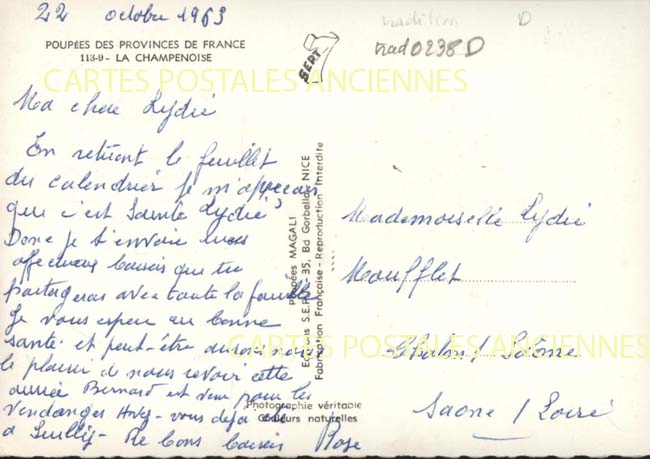 22 octobre 1963
POUPÉES DES PROVINCES DE FRANCE
113-9 - LA CHAMPENOISE
SERT
nad0238D
D
CARTES POSTALES ANCIENNES
Ma chère Lydie
En retirant le feuillet
du calendrier je m'aperçois
que c'est Sainte Lydie,
Donc je t'envoie mes
affectueux baisers que tu
partageras avec toute la famille
Je vous espère en bonne
santé et peut-être aurons nous
le plaisir de nous revoir cette
année Bernard est venu pour les
vendanges Avez-vous déjà été
a Re bons baisers Rose
POUPÉES MAGALI
35, Bd Gorbella, NICE
Fabrication Française - Reproduction Interdite
Photographie véritable
Couleurs naturelles
Mademoiselle Lydie
Moufflet
Chalon / Saône
Saone / Loire
CARTES POSTALES ANCIENNES